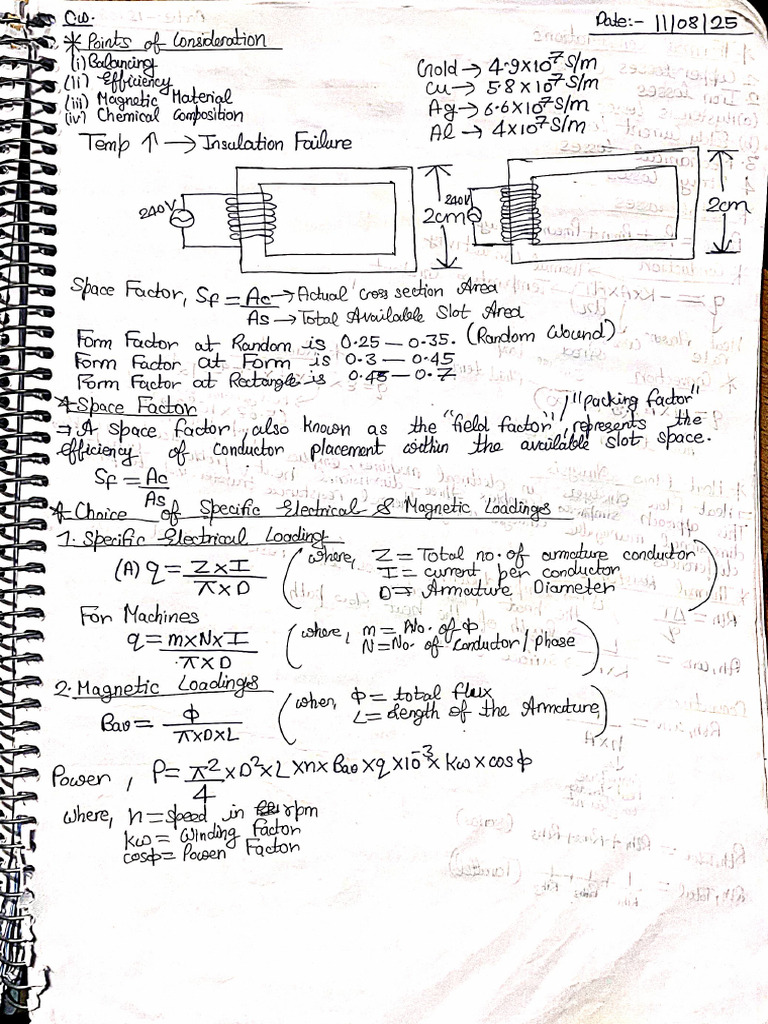 CW.
Date:- 11/08/25
* Points of Consideration
(i) Balancing
(ii) Efficiency
(iii) Magnetic Material
(iv) Chemical Composition
Gold → 4.9×10⁷ S/m
Cu → 5.8×10⁷ S/m
Ag → 6.6×10⁷ S/m
Al → 4×10⁷ S/m
Temp ↑ → Insulation Failure
240V
2cm
240V
2cm
Space Factor, Sf = Ac → Actual Cross section Area
As → Total Available Slot Area
Form Factor at Random is 0.25 – 0.35. (Random Wound)
Form Factor at Form is 0.3 – 0.45
Form Factor at Rectangle is 0.45 – 0.7
* Space Factor
⇒ A space factor, also known as the "field factor"/"packing factor", represents the
efficiency of conductor placement within the available slot space.
Sf = Ac/As
* Choice of Specific Electrical & Magnetic Loadings
1. Specific Electrical Loading
(A) q = Z×I/π×D (where, Z = Total no. of armature conductor
I = current per conductor
D → Armature Diameter)
For Machines
q = m×N×I/π×D (where, m = No. of Φ
N = No. of Conductor / Phase)
2. Magnetic Loadings
Bav = Φ/π×D×L (when, Φ = total flux
L = Length of the Armature)
Power, P = π²/4 × D² × L × n × Bav × q × 10⁻³ × Kw × cosΦ
where, n = speed in rpm
Kw = Winding Factor
cosΦ = Power Factor